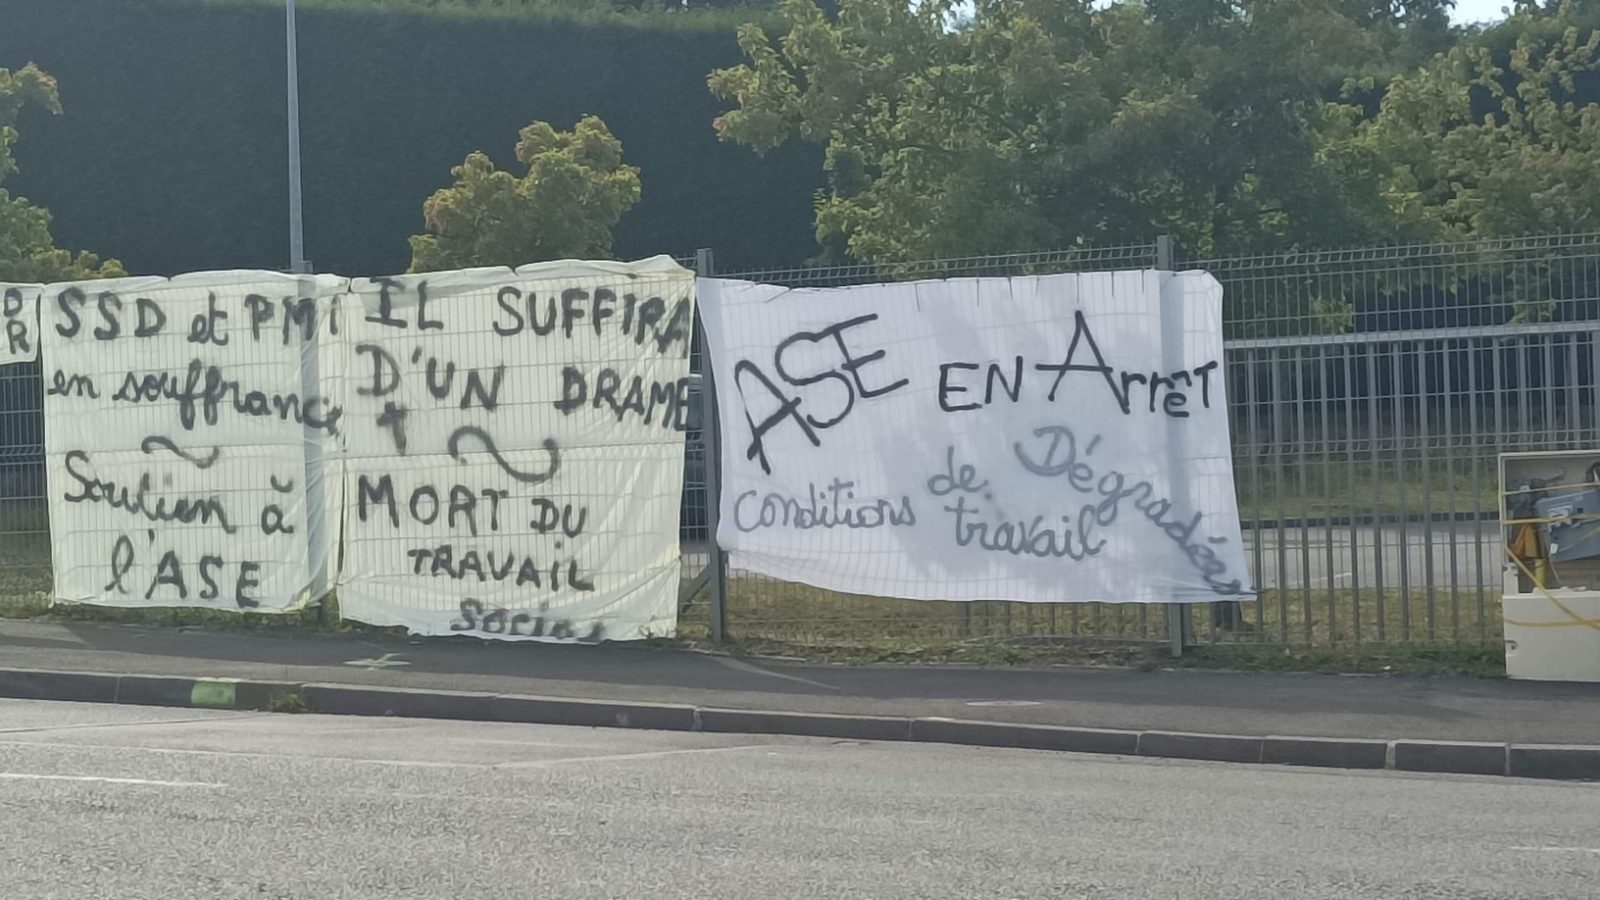 D
R
SSD et PMI
en souffrance
~
Soutien à
l'ASE
IL SUFFIRA
D'UN DRAME
~
MORT DU
TRAVAIL
Social
ASE EN ArrêT
conditions de travail Dégradées